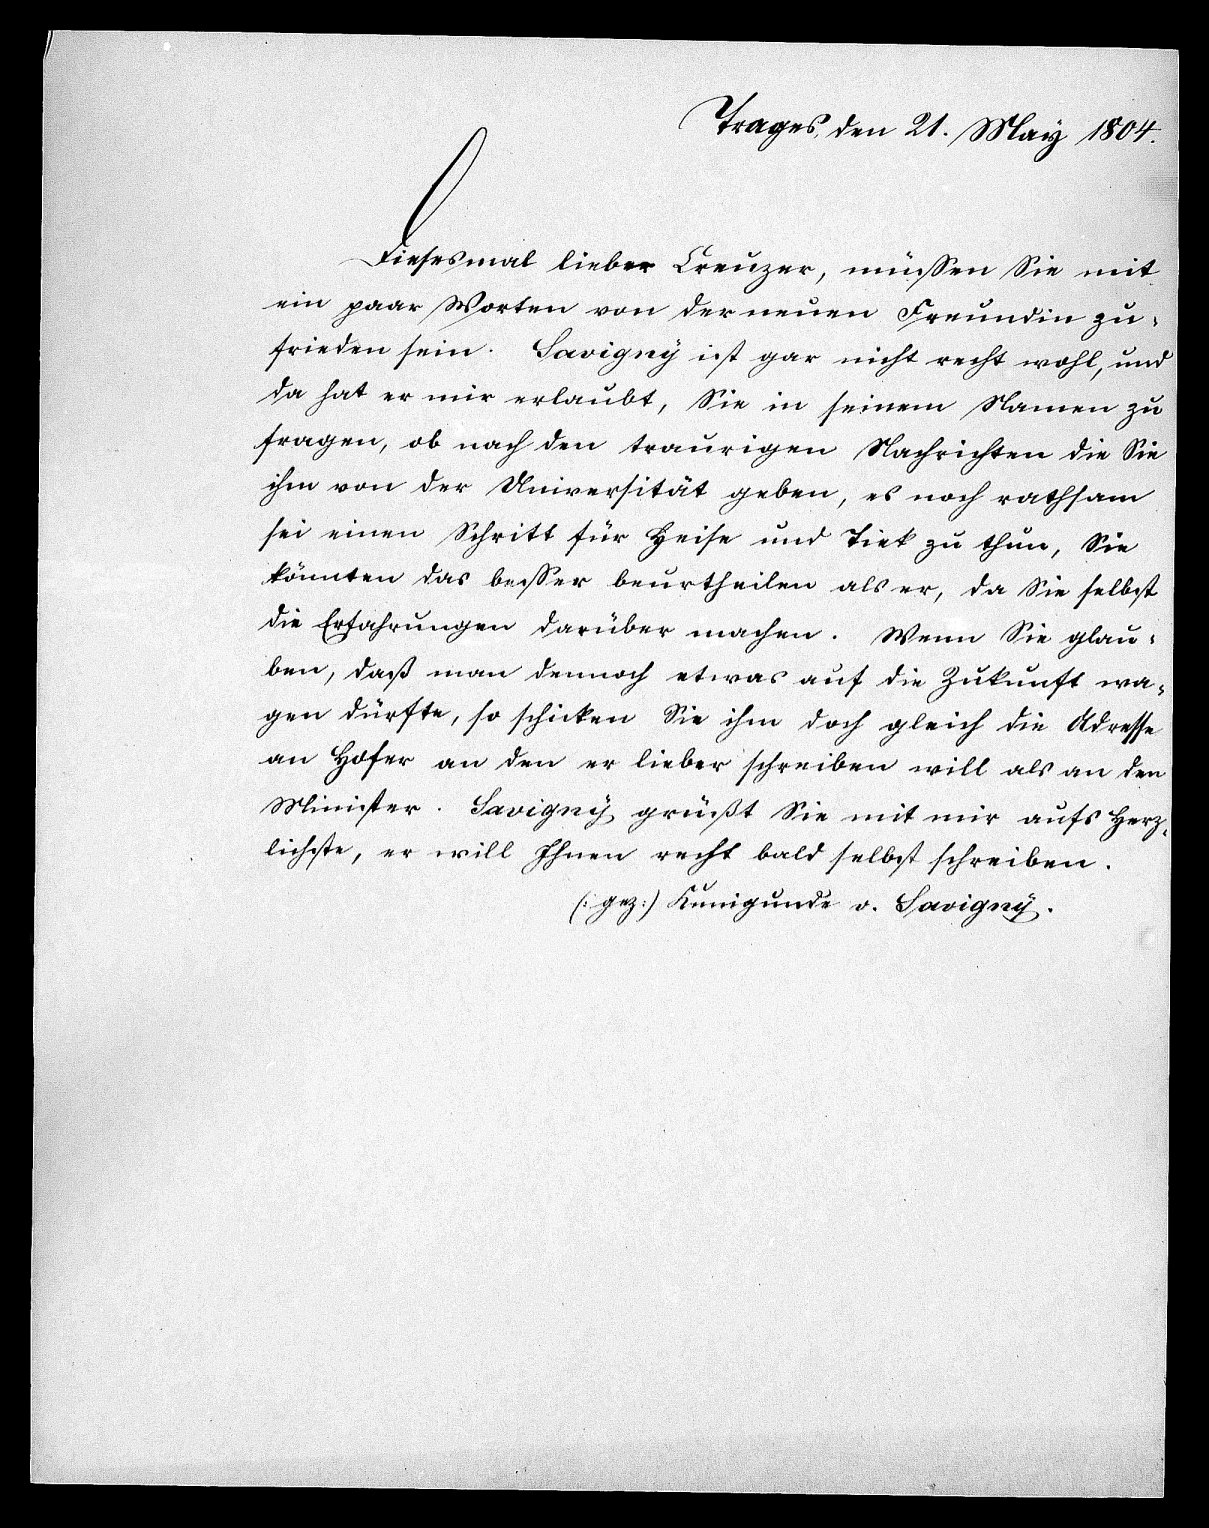 Trages, den 21. May 1804.
Diesesmal lieber Creuzer, müssen Sie mit
ein paar Worten von der neuen Freundin zu-
frieden sein. Savigny ist gar nicht recht wohl, und
da hat er mir erlaubt, Sie in seinem Namen zu
fragen, ob nach den traurigen Nachrichten die Sie
ihm von der Universität geben, es noch rathsam
sei einen Schritt für Heise und Tiek zu thun, Sie
könnten das besser beurtheilen als er, da Sie selbst
die Erfahrungen darüber machen. Wenn Sie glau-
ben, daß man dennoch etwas auf die Zukunft wa-
gen dürfte, so schicken Sie ihm doch gleich die Adresse
an Hofer an den er lieber schreiben will als an den
Minister. Savigny grüßt Sie mit mir aufs Herz-
lichste, er will Ihnen recht bald selbst schreiben.
(: gez:) Kunigunde v. Savigny.